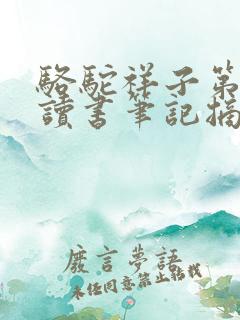 駱駝祥子第
讀書筆記摘
廢言夢語
未經同意禁止轉載